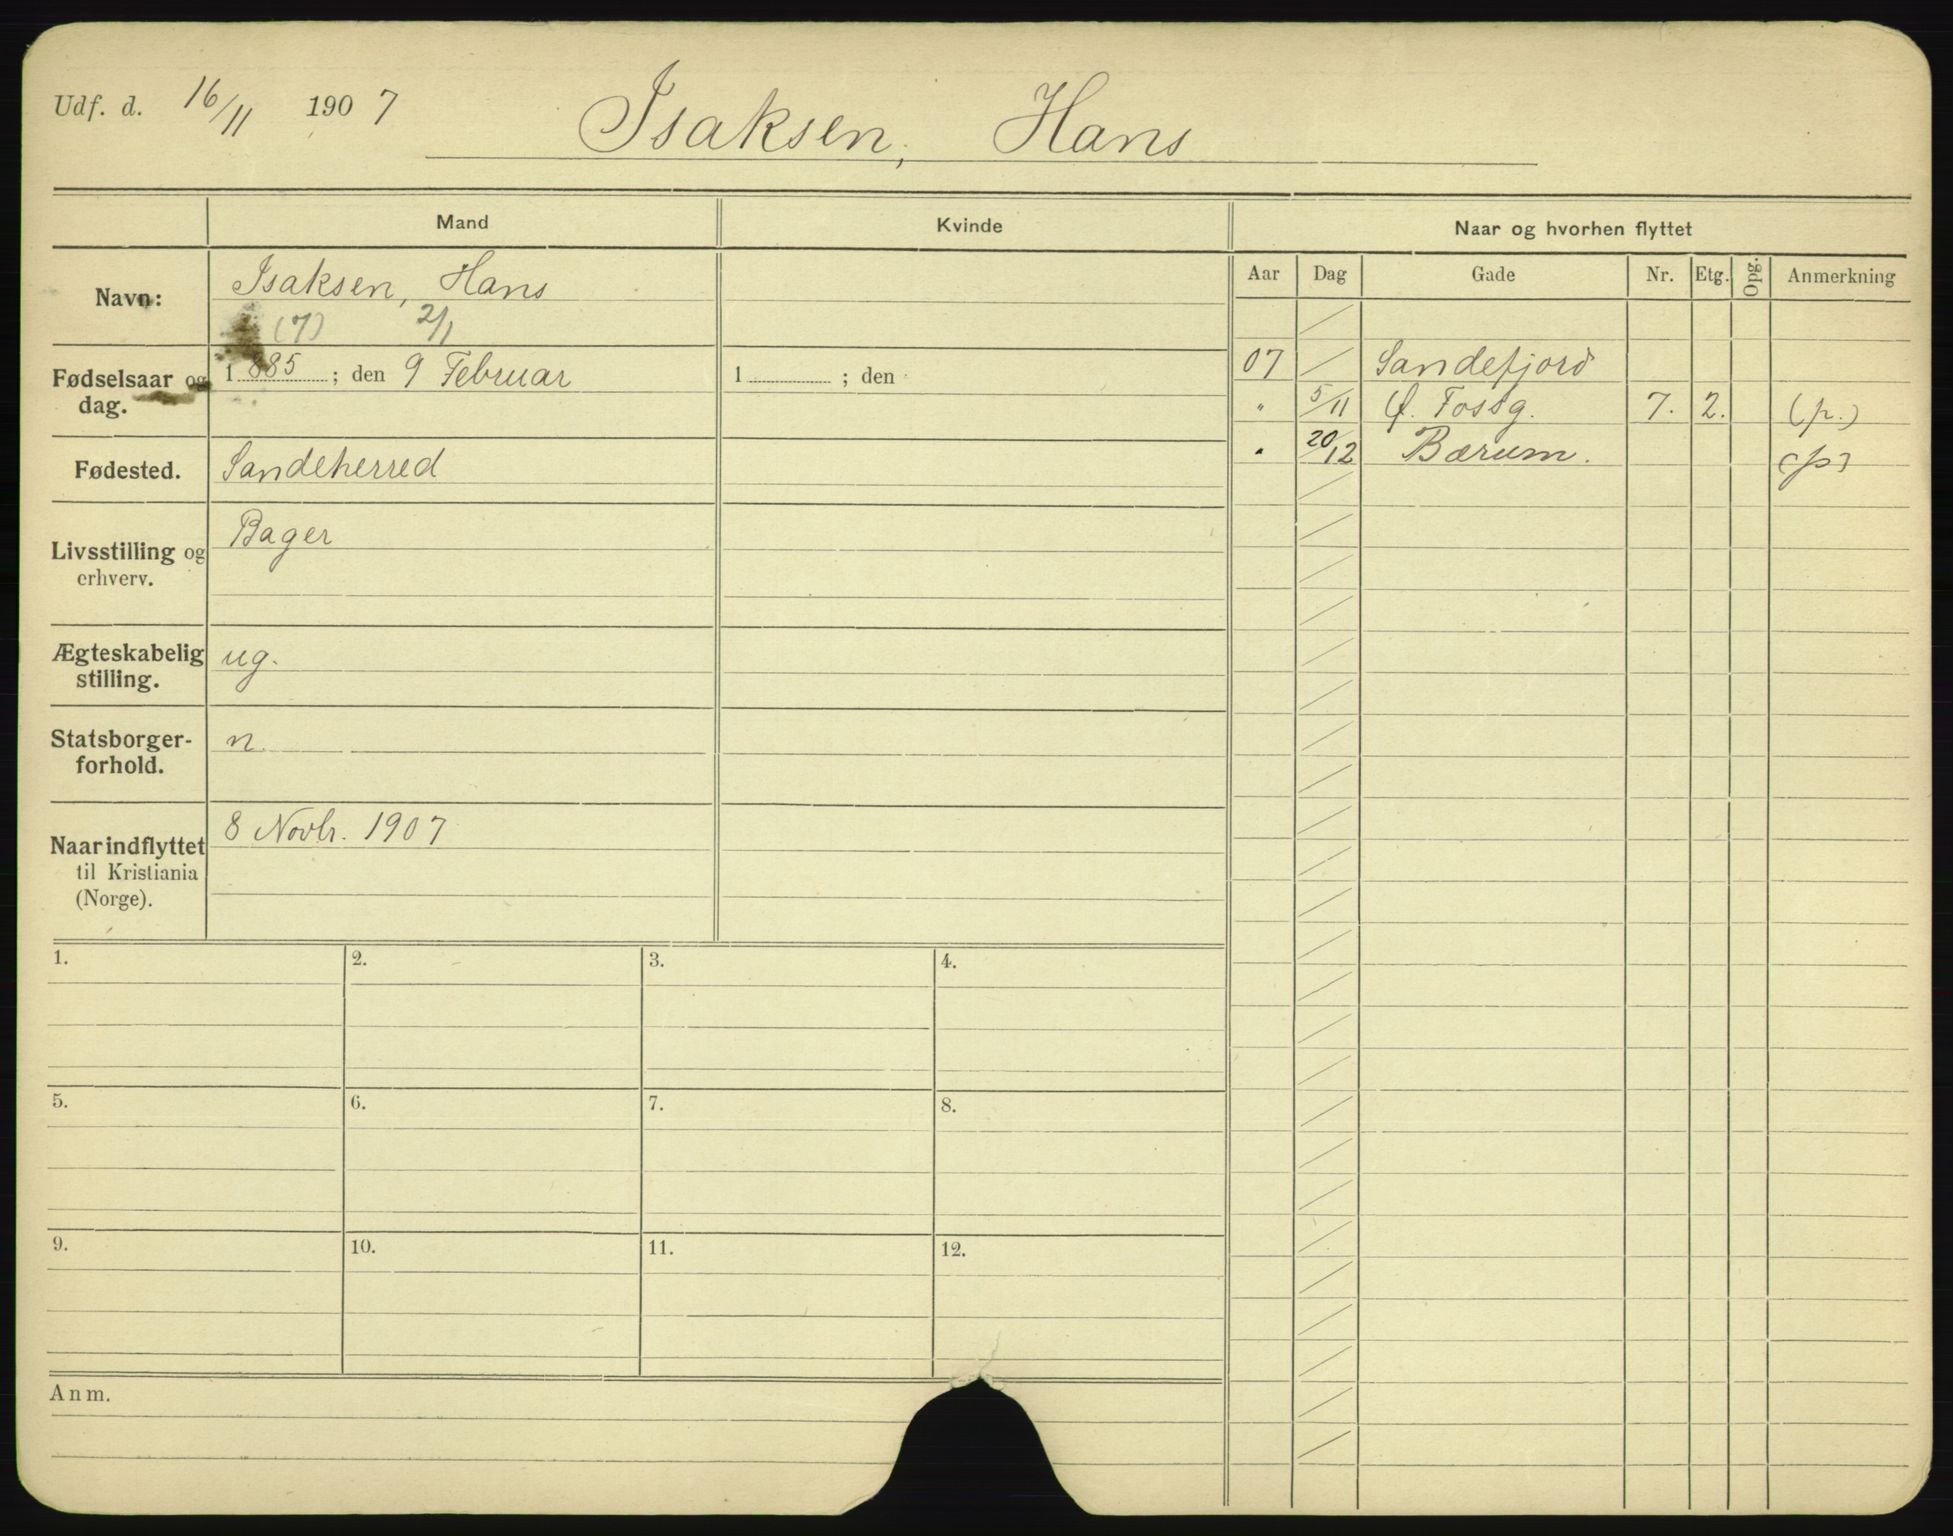 Udf. d. 16/11 1907
Isaksen, Hans
Mand
Kvinde
Naar og hvorhen flyttet
Aar Dag Gade Nr. Etg. Opg. Anmerkning
Navn: Isaksen, Hans
(7) 2/1
Fødselsaar og dag. 1885; den 9 Februar
1 ; den
Fødested. Sandeherred
Livsstilling og erhverv. Bager
Ægteskabelig stilling. ug.
Statsborgerforhold. n.
Naar indflyttet til Kristiania (Norge). 8 Novbr. 1907
07 Sandefjord
" 5/11 Ø. Fossg. 7. 2. (p.)
" 20/12 Bærum. (p)
1. 2. 3. 4.
5. 6. 7. 8.
9. 10. 11. 12.
Anm.